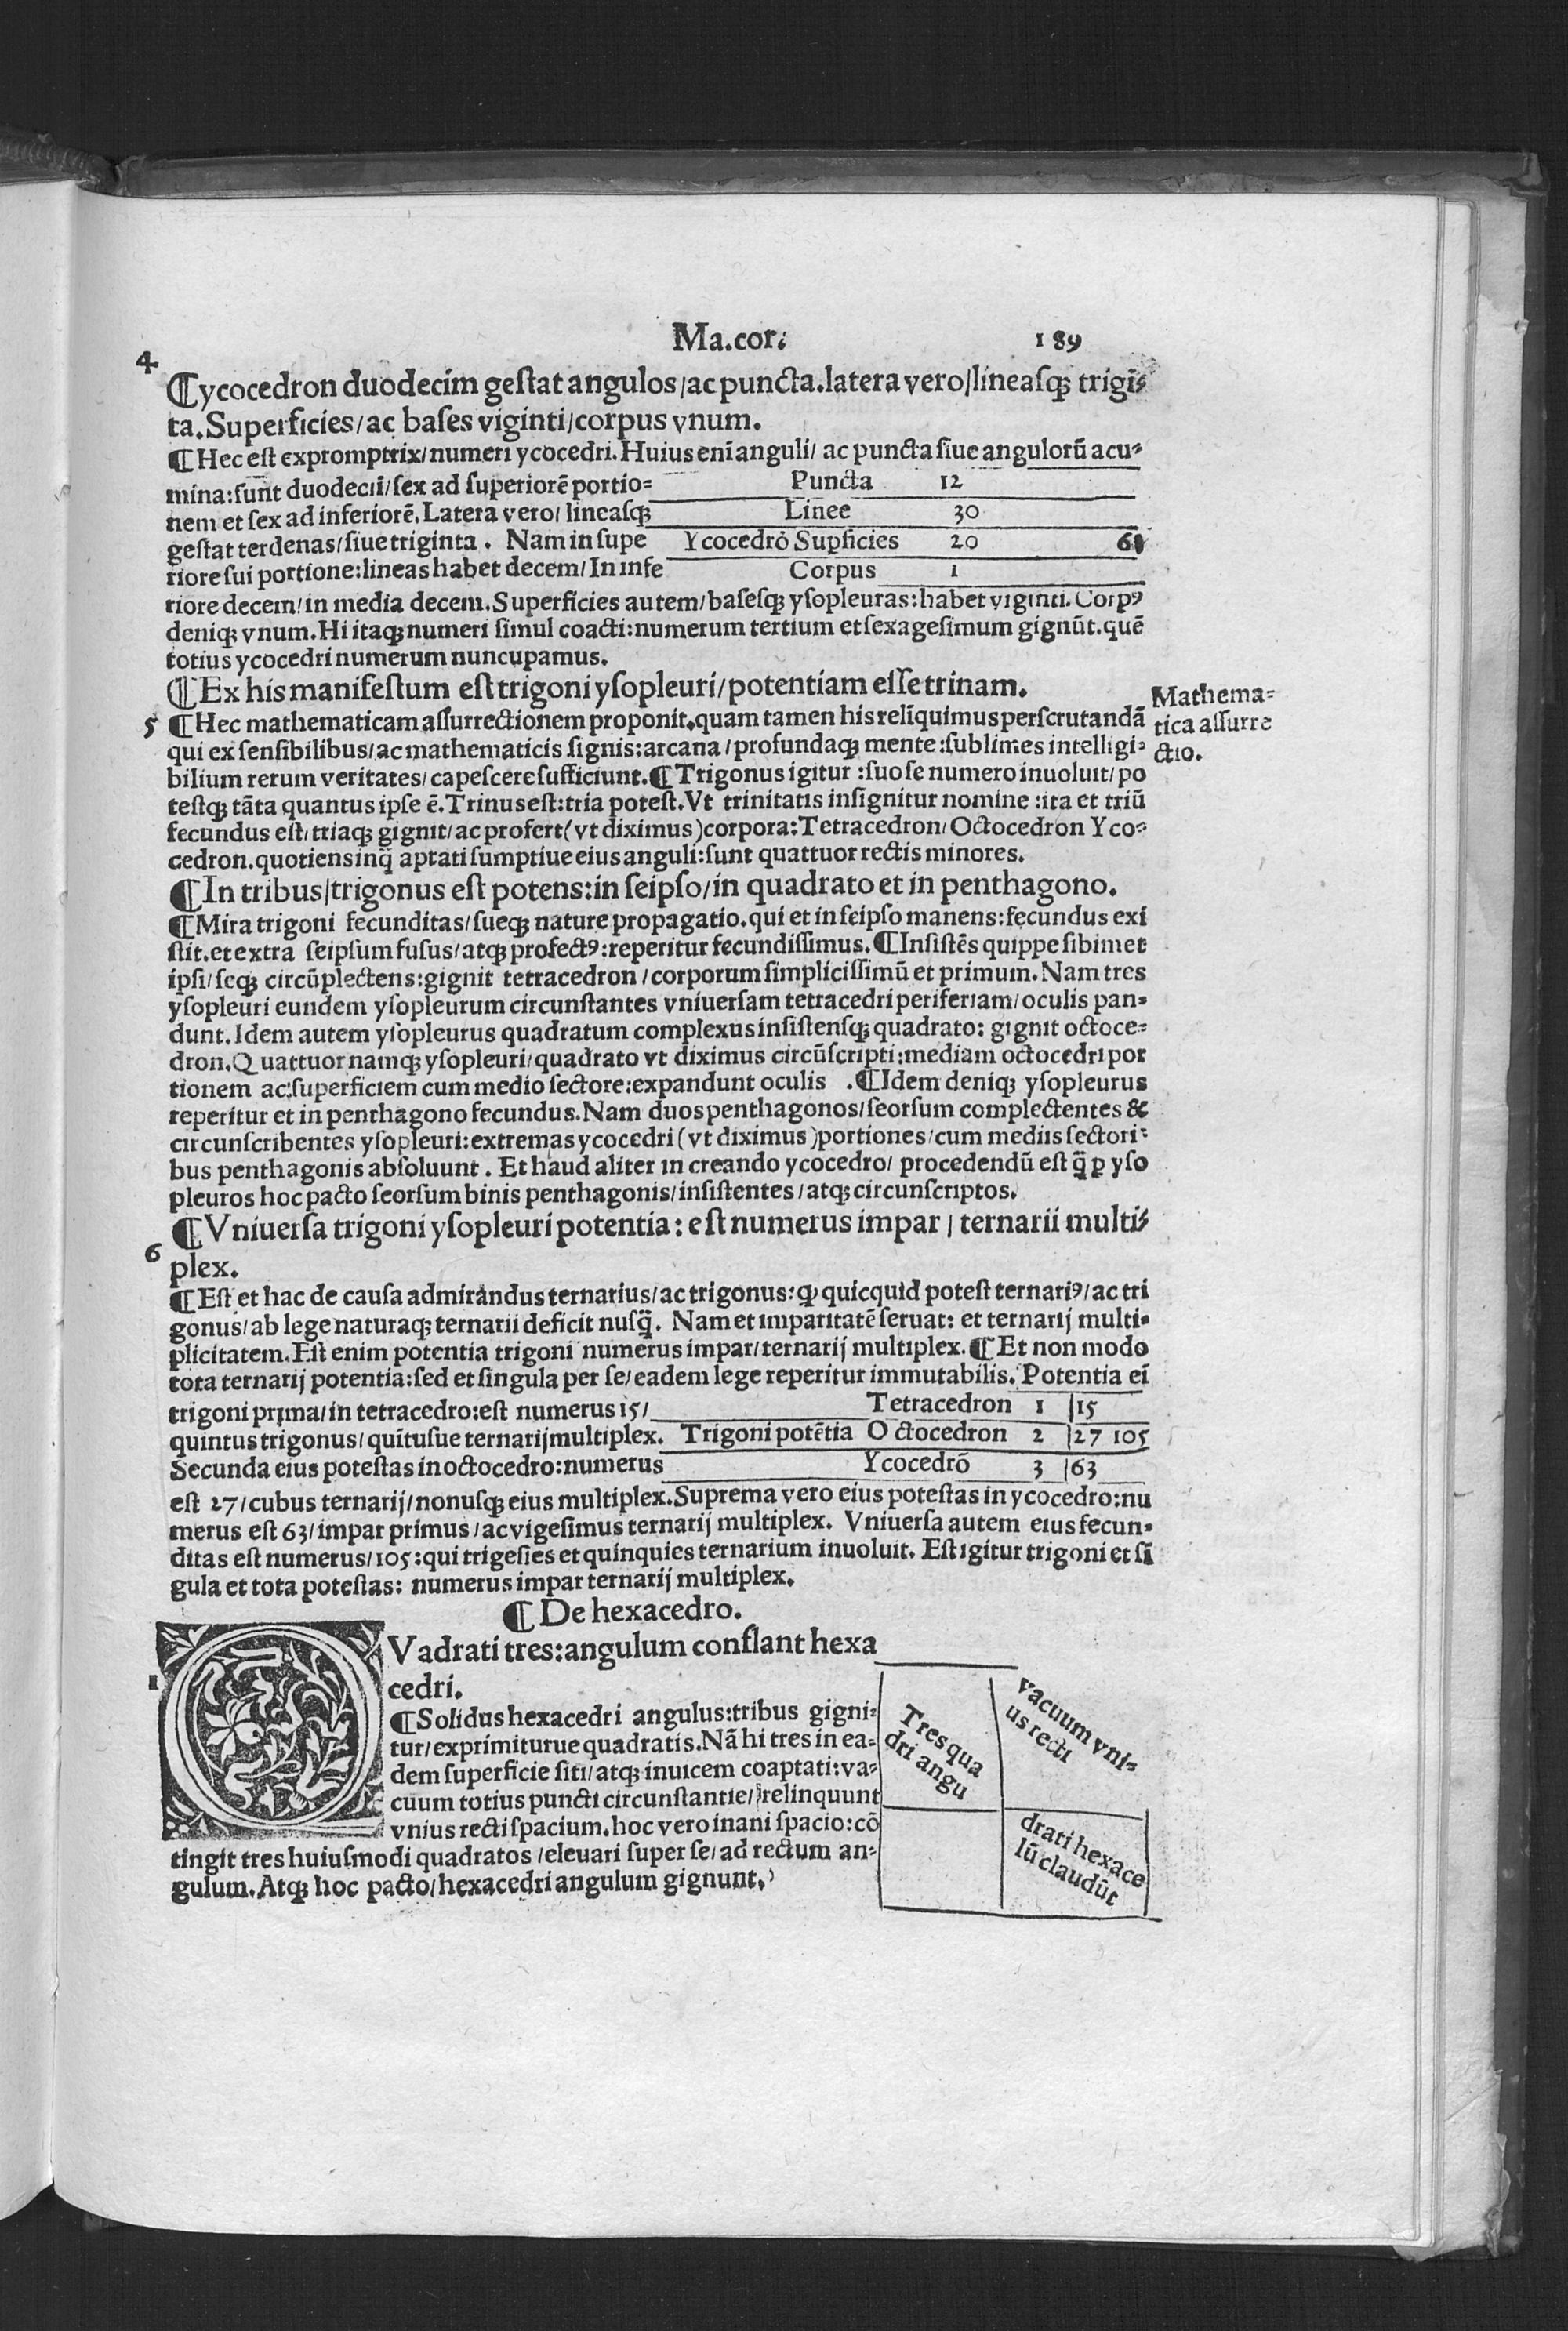 Ma.cor. 189
4
¶ycocedron duodecim gestat angulos/ac puncta.latera vero/lineasqꝫ trigī⸗
ta.Superficies/ac bases viginti/corpus vnum.
¶Hec est expromptrix/numeri ycocedri.Huius enī anguli/ac puncta siue angulorū acu⸗
mina:sunt duodecii/sex ad superiorē portio⸗
nem et sex ad inferiorē.Latera vero/lineasqꝫ
gestat terdenas/siue triginta. Nam in supe
riore sui portione:lineas habet decem/In infe
Puncta 12
Linee 30
Ycocedrō Supficies 20
Corpus 1
riore decem/in media decem.Superficies autem/basesqꝫ ysopleuras:habet viginti.Corpꝰ
deniqꝫ vnum.Hi itaqꝫ numeri simul coacti:numerum tertium et sexagesimum gignūt.quē
totius ycocedri numerum nuncupamus.
¶Ex his manifestum est trigoni ysopleuri/potentiam esse trinam.
Mathema⸗
tica assurre
ctio.
5 ¶Hec mathematicam assurrectionem proponit.quam tamen his relīquimus perscrutandā
qui ex sensibilibus/ac mathematicis signis:arcana/profundaqꝫ mente:sublimes intelligi⸗
bilium rerum veritates/capescere sufficiunt.¶Trigonus igitur:suo se numero inuoluit/po
testqꝫ tāta quantus ipse ē.Trinus est:tria potest.Vt trinitatis insignitur nomine:ita et triū
fecundus est/triaqꝫ gignit/ac profert(vt diximus)corpora:Tetracedron/Octocedron Yco⸗
cedron.quotiens inq̄ aptati sumptiue eius anguli:sunt quattuor rectis minores.
¶In tribus/trigonus est potens:in seipso/in quadrato et in penthagono.
¶Mira trigoni fecunditas/sueqꝫ nature propagatio.qui et in seipso manens:fecundus exi
stit.et extra seipsum fusus/atqꝫ profectꝰ:reperitur fecundissimus.¶Insistēs quippe sibimet
ipsi/seqꝫ circūplectens:gignit tetracedron/corporum simplicissimū et primum.Nam tres
ysopleuri eundem ysopleurum circunstantes vniuersam tetracedri periferiam/oculis pan⸗
dunt.Idem autem ysopleurus quadratum complexus insistensqꝫ quadrato: gignit octoce⸗
dron.Quattuor namqꝫ ysopleuri/quadrato vt diximus circūscripti:mediam octocedri por
tionem ac:superficiem cum medio sectore:expandunt oculis .¶Idem deniqꝫ ysopleurus
reperitur et in penthagono fecundus.Nam duos penthagonos/seorsum complectentes &
circunscribentes ysopleuri:extremas ycocedri(vt diximus)portiones/cum mediis sectori⸗
bus penthagonis absoluunt. Et haud aliter in creando ycocedro/ procedendū est q̄ ꝑ yso
pleuros hoc pacto seorsum binis penthagonis/insistentes/atqꝫ circunscriptos.
¶Vniuersa trigoni ysopleuri potentia: est numerus impar/ ternarii multi⸗
6
plex.
¶Est et hac de causa admirandus ternarius/ac trigonus:ꝙ quicquid potest ternariꝰ/ac tri
gonus/ab lege naturaqꝫ ternarii deficit nusq̄. Nam et imparitatē seruat: et ternarij multi⸗
plicitatem.Est enim potentia trigoni numerus impar/ternarij multiplex.¶Et non modo
tota ternarij potentia:sed et singula per se/eadem lege reperitur immutabilis. Potentia eī
trigoni prima/in tetracedro:est numerus 15/
quintus trigonus/quītusue ternarij multiplex.
Secunda eius potestas in octocedro:numerus
Tetracedron 1 |15
Trigoni potētia Octocedron 2 |27 105
Ycocedrō 3 |63
est 27/cubus ternarij/nonusqꝫ eius multiplex.Suprema vero eius potestas in ycocedro:nu
merus est 63/impar primus/ac vigesimus ternarij multiplex. Vniuersa autem eius fecun⸗
ditas est numerus/105:qui trigesies et quinquies ternarium inuoluit. Est igitur trigoni et sī
gula et tota potestas: numerus impar ternarij multiplex.
¶De hexacedro.
1
QVadrati tres:angulum conflant hexa
cedri.
¶Solidus hexacedri angulus:tribus gigni⸗
tur/exprimiturue quadratis.Nā hi tres in ea⸗
dem superficie siti/atqꝫ inuicem coaptati:va⸗
cuum totius puncti circunstantie/relinquunt
vnius recti spacium.hoc vero inani spacio:cō
tingit tres huiusmodi quadratos/eleuari super se/ad rectum an⸗
gulum.Atqꝫ hoc pacto/hexacedri angulum gignunt.
Tres qua
dri angu
vacuum vni⸗
us recti
drati hexace
lū claudūt